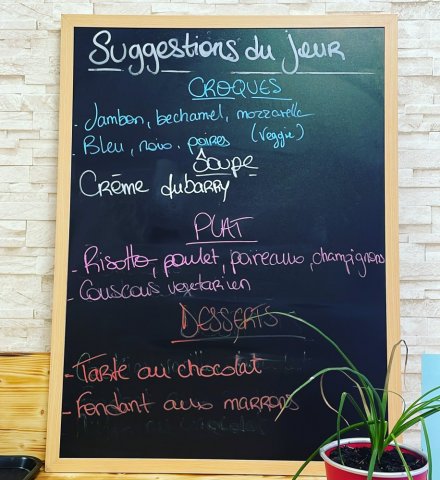 Suggestions du jour
CROQUES
- Jambon, bechamel, mozzarella
- Bleu, noix, poires (Veggie)
Soupe
Crème dubarry
PLAT
- Risotto, poulet, poireaux, champignons
- Couscous vegetarien
DESSERTS
- Tarte au chocolat
- Fondant aux marrons